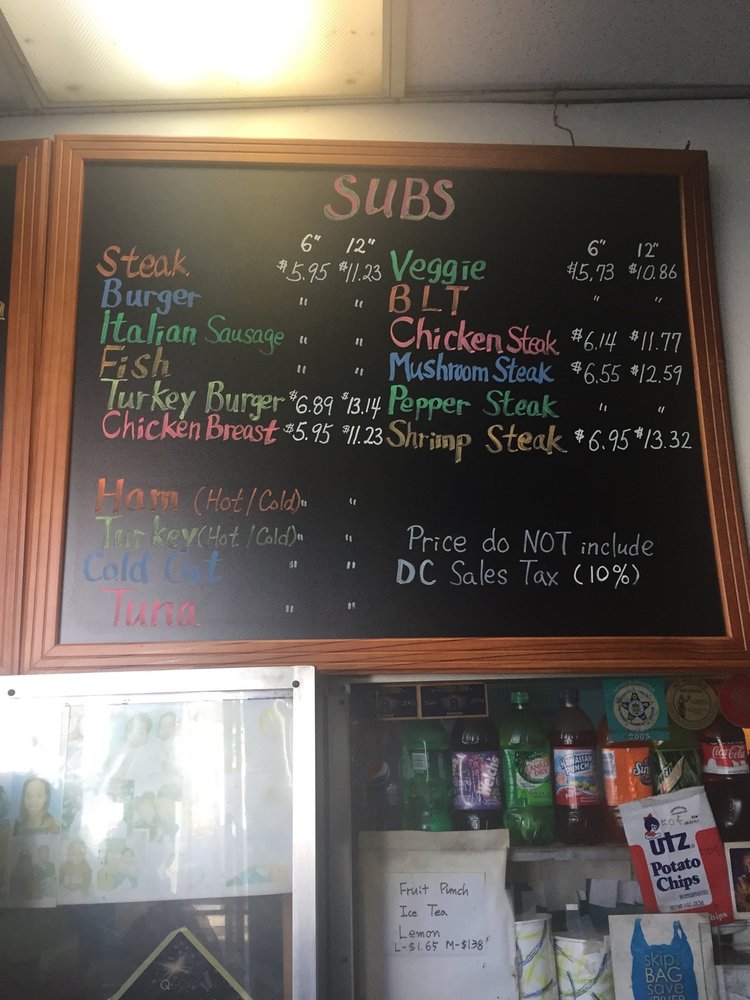 SUBS
6" 12"
Steak $5.95 $11.23
Burger " "
Italian Sausage " "
Fish " "
Turkey Burger $6.89 $13.14
Chicken Breast $5.95 $11.23
Ham (Hot/Cold) " "
Turkey (Hot/Cold) " "
Cold Cut " "
Tuna " "
6" 12"
Veggie $5,73 $10.86
BLT " "
Chicken Steak $6.14 $11.77
Mushroom Steak $6.55 $12.59
Pepper Steak " "
Shrimp Steak $6.95 $13.32
Price do NOT include
DC Sales Tax (10%)
2005
CANADA DRY
HAWAIIAN PUNCH
Coca-Cola
50¢
UTZ
Potato
Chips
Chips
Fruit Punch
Ice Tea
Lemon
L-$1.65 M-$1.38
skip
the
BAG
save